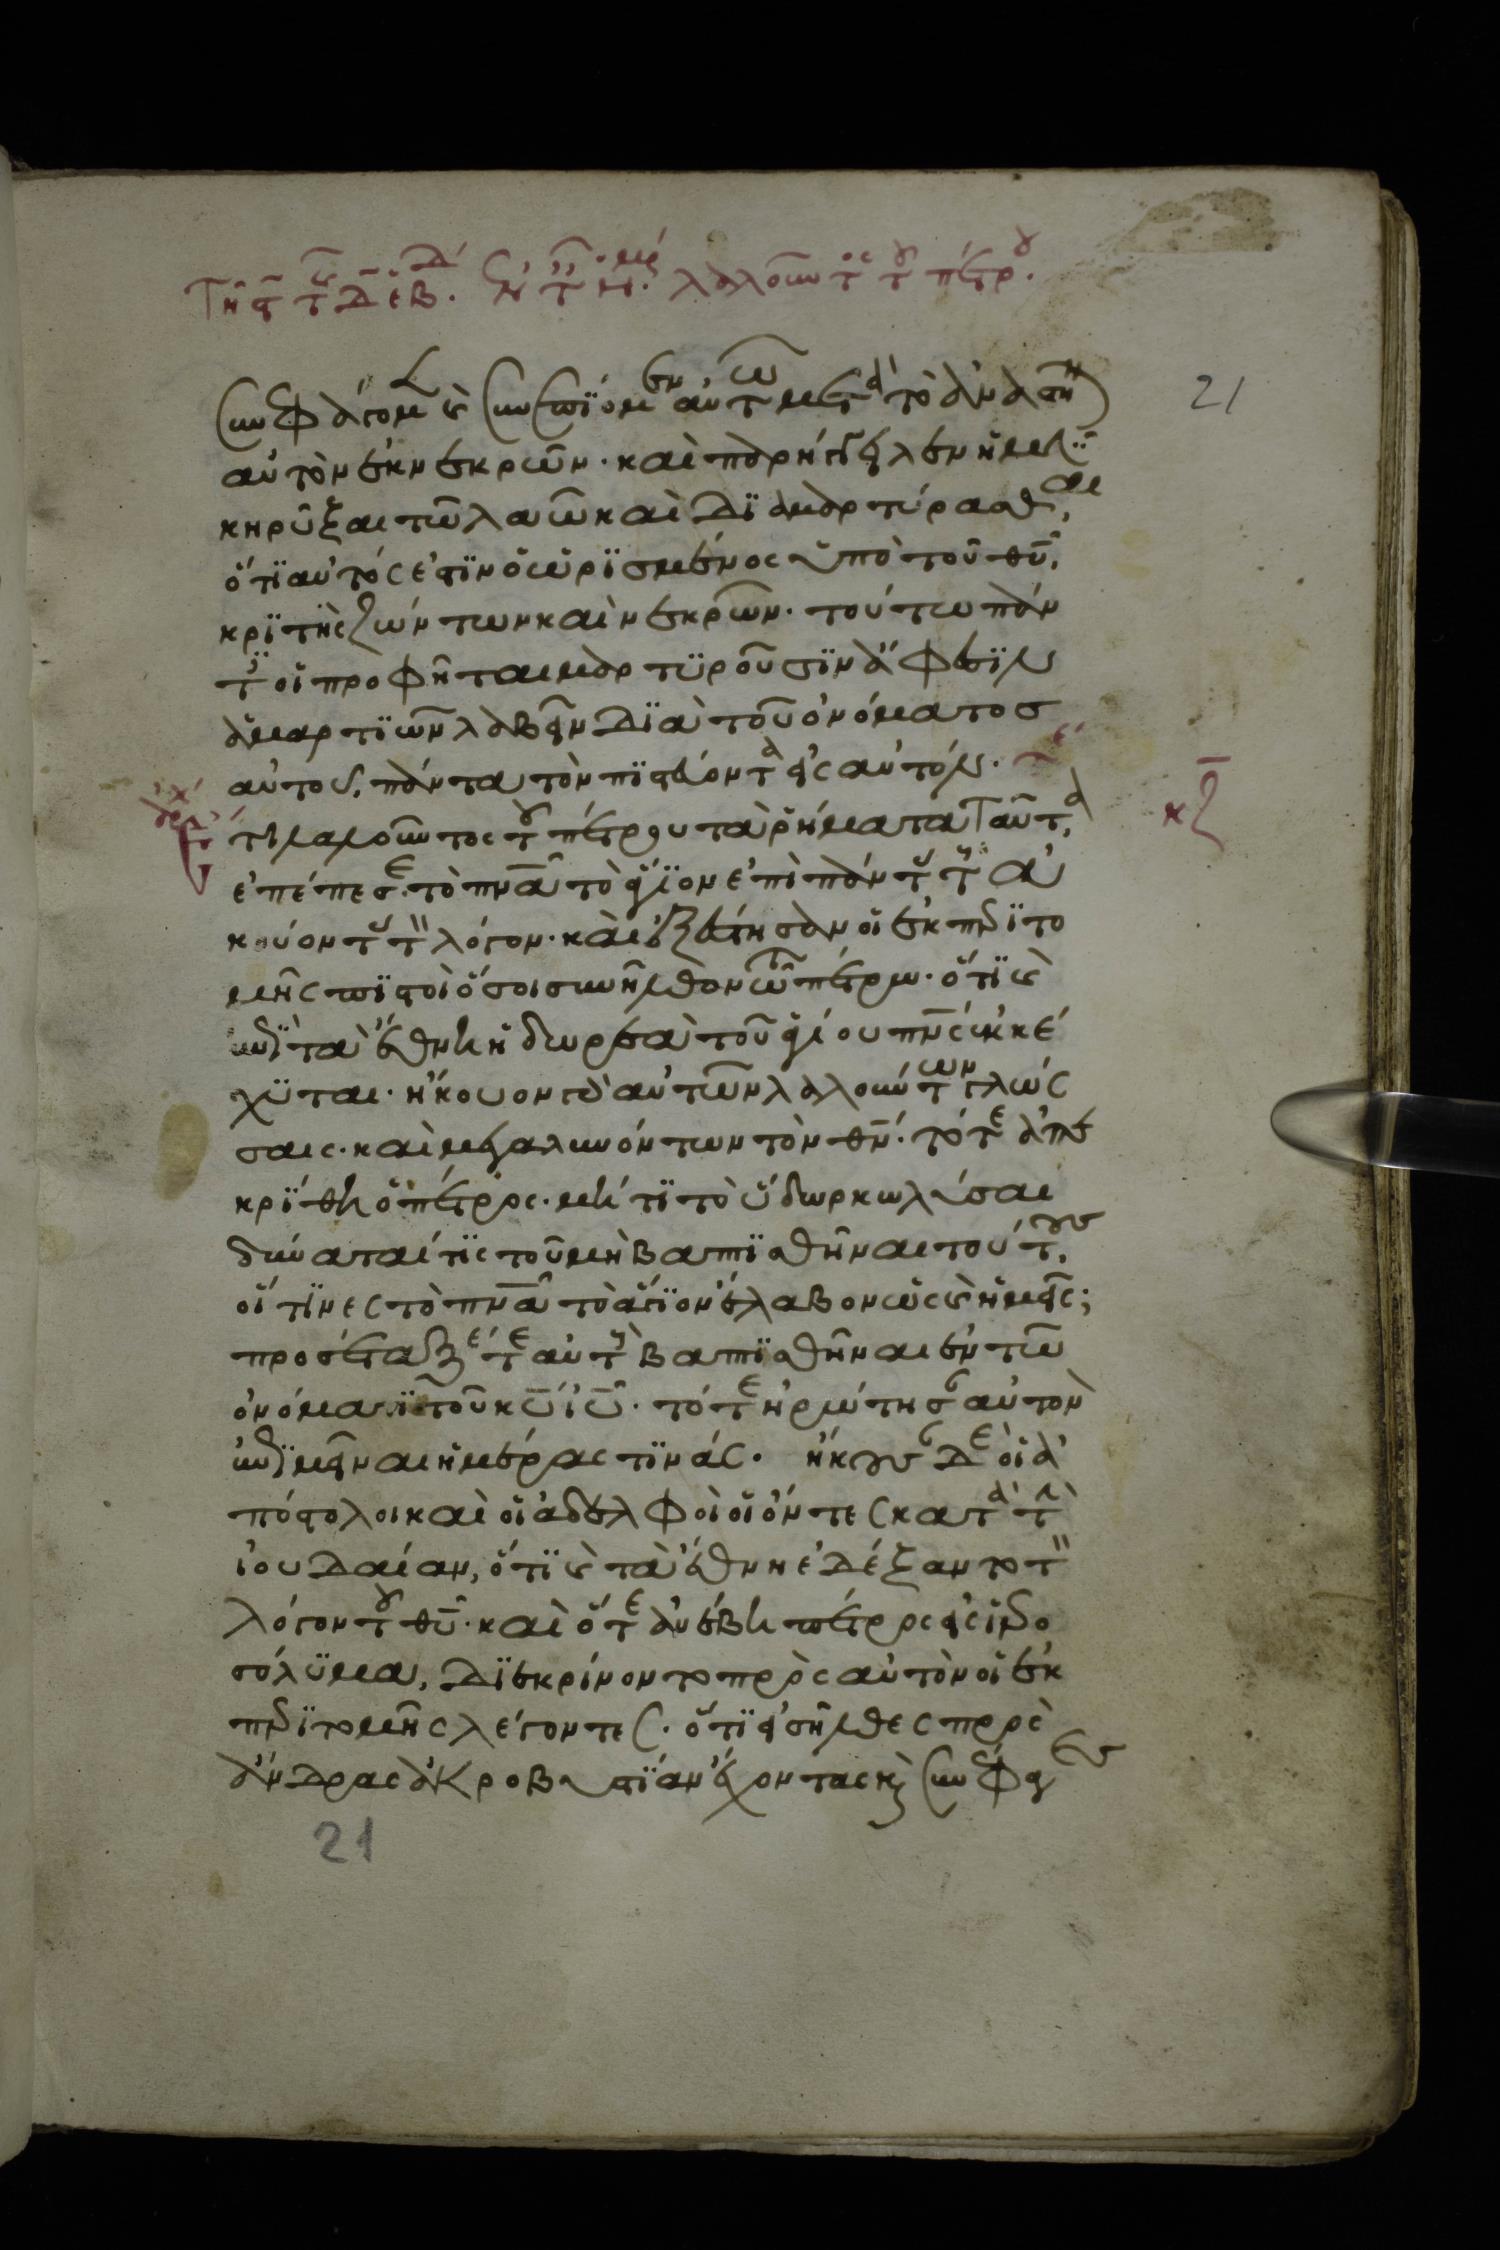 συνεφάγομεν καὶ συνεπίομεν αὐτῷ μετὰ τὸ ἀναστῆναι
αὐτὸν ἐκ νεκρῶν. καὶ παρήγγειλεν ἡμῖν
κηρῦξαι τῶ λαῶ καὶ διαμαρτύρασθαι,
ὅτι αὐτός ἐστιν ὁ ὡρισμένος ὑπὸ τοῦ θυ,
κριτὴς ζώντων καὶ νεκρῶν. τούτω πάν
τες οἱ προφῆται μαρτυροῦσιν ἄφεσιν
ἁμαρτιῶν λαβεῖν διὰ τοῦ ὀνόματος
αὐτοῦ, πάντα τὸν πιστεύοντα εἰς αὐτόν.
ἔτι λαλοῦντος τοῦ πέτρου τὰ ῥήματα ταῦτα,
ἐπέπεσε τὸ πνα τὸ ἅγιον ἐπὶ πάντας τοὺς ἀ
κούοντας τὸν λόγον. καὶ ἐξέστησαν οἱ ἐκ περιτο
μῆς πιστοὶ ὅσοι συνῆλθον τῶ πέτρω. ὅτι καὶ
ἐπὶ τὰ ἔθνη ἡ δωρεὰ τοῦ ἁγίου πνς ἐκκέ
χυται. ἤκουον γὰρ αὐτῶν λαλούντων γλώσ
σαις. καὶ μεγαλυνόντων τὸν θν. τότε ἀπε
κρίθη ὁ πέτρος. μήτι τὸ ὕδωρ κωλύσαι
δύναταί τις τοῦ μὴ βαπτισθῆναι τούτους,
οἵτινες τὸ πνα τὸ ἅγιον ἔλαβον ὡς καὶ ἡμεῖς;
προσέταξέ τε αὐτοὺς βαπτισθῆναι ἐν τῶ
ὀνόματι τοῦ κυ ιυ. τότε ἠρώτησαν αὐτὸν
ἐπιμεῖναι ἡμέρας τινάς. ἤκουσαν δὲ οἱ ἀ
πόστολοι καὶ οἱ ἀδελφοὶ οἱ ὄντες κατὰ τὴν
ἰουδαίαν, ὅτι καὶ τὰ ἔθνη ἐδέξαντο τὸν
λόγον τοῦ θυ. καὶ ὅτε ἀνέβη πέτρος εἰς ἱερο
σόλυμα, διεκρίνοντο πρὸς αὐτὸν οἱ ἐκ
περιτομῆς λέγοντες. ὅτι εἰσῆλθες πρὸς
ἄνδρας ἀκροβυστίαν ἔχοντας καὶ συνέφαγες
κζ
21
21